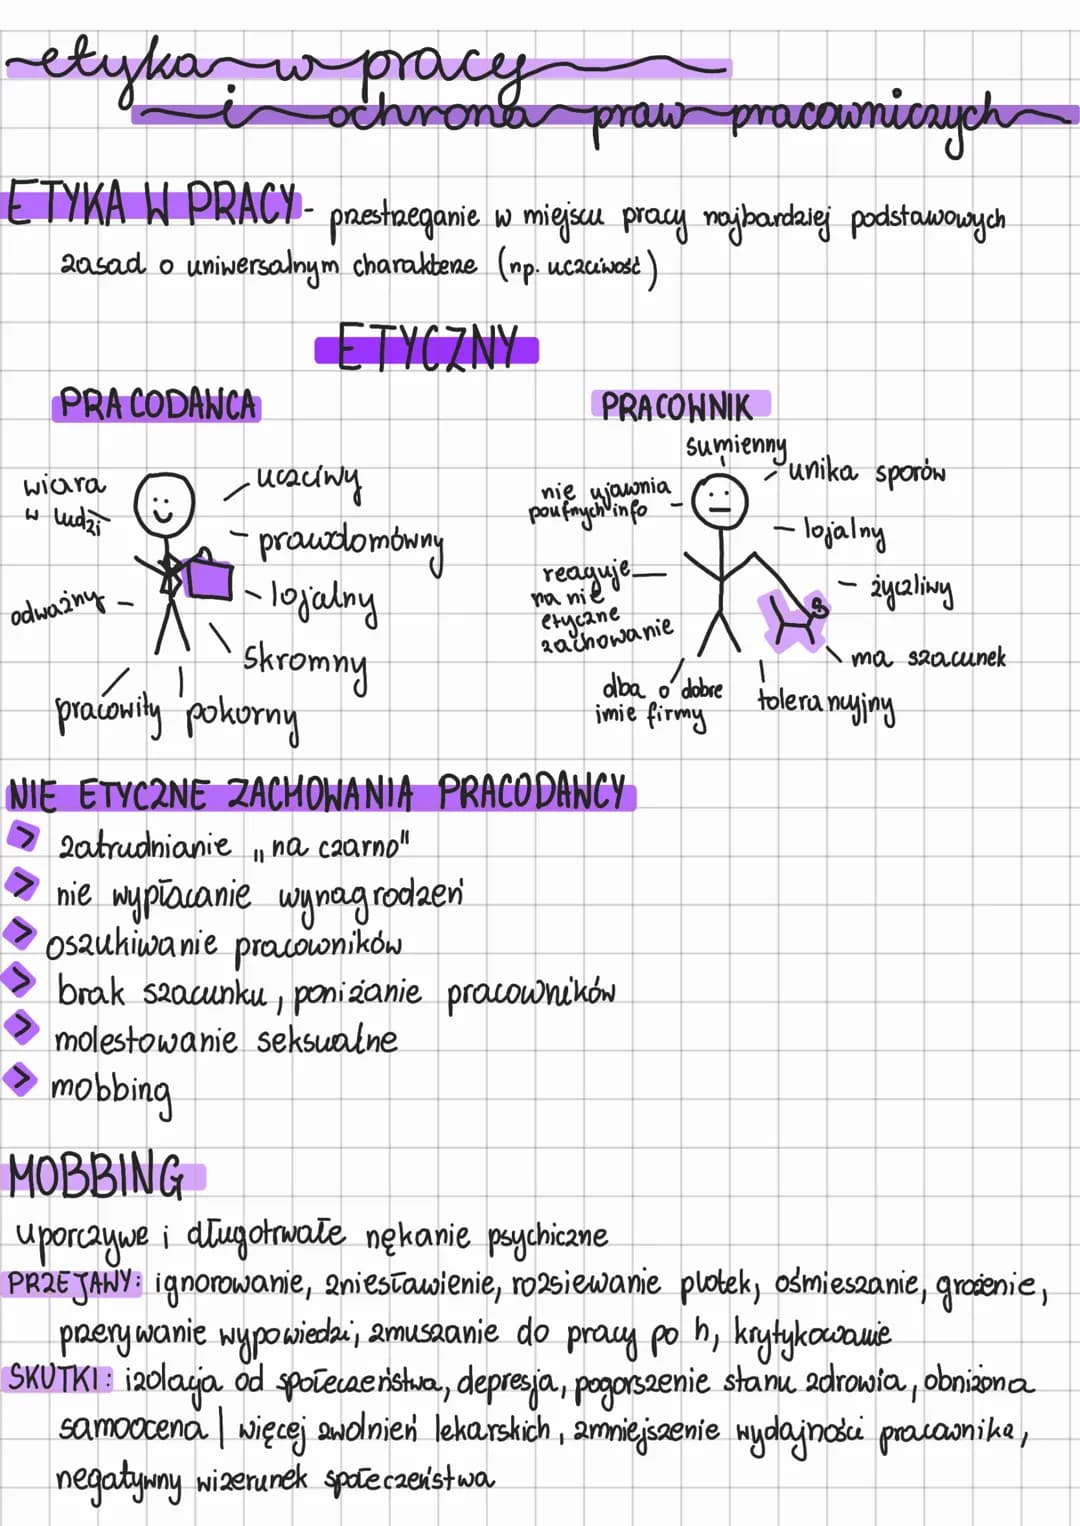 etyka w pracy
i ochrona praw pracowniczych
ETYKA W PRACY - przestrzeganie w miejscu pracy najbardziej podstawowych
zasad o uniwersalnym charakterze (np. uczciwość)
ETYCZNY
PRACODAWCA
wiara
w ludzi
uczciwy
prawdomówny
lojalny
skromny
pokorny
pracowity
odważny
PRACOWNIK
sumienny
unika sporów
lojalny
życzliwy
ma szacunek
tolerancyjny
dba o dobre
imie firmy
reaguje
na nie
etyczne
zachowanie
nie ujawnia
poufnych info
NIE ETYCZNE ZACHOWANIA PRACODAWCY
> zatrudnianie „na czarno"
> nie wypłacanie wynagrodzeń
> oszukiwanie pracowników
> brak szacunku, poniżanie pracowników
> molestowanie seksualne
> mobbing
MOBBING
uporczywe i długotrwałe nękanie psychiczne
PRZEJAWY: ignorowanie, zniesławienie, rozsiewanie plotek, ośmieszanie, grożenie,
przerywanie wypowiedzi, zmuszanie do pracy po h, krytykowanie
SKUTKI: izolacja od społeczeństwa, depresja, pogorszenie stanu zdrowia, obniżona
samoocena | więcej zwolnień lekarskich, zmniejszenie wydajności pracownika,
negatywny wizerunek społeczeństwa